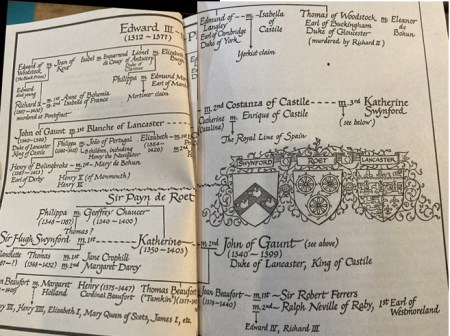 Edward III
(1312 – 1377)
Edward of
Woodstock,
(the Black Prince)
m.
Joan of
Kent
Isabel m.
Lionel
of Antwerp
Duke of
Clarence
m. Elizabeth
Edward
died young
Richard II
m. 1st Anne of Bohemia
2nd Isabella of France
murdered at Pontefract
Philippa m. Edmund
Earl of
Mortimer claim
John of Gaunt m. 1st Blanche of Lancaster
(1340–1399)
Duke of Lancaster
King of Castile
Philippa m. João of Portugal
Elizabeth
8 children, including
Henry the Navigator
Henry of Bolingbroke m. 1st Mary de Bohun
Earl of Derby
Henry IV
Henry V (of Monmouth)
Henry VI
Sir Payn de Roet
Philippa m. Geoffrey Chaucer
(1340 – 1400)
Thomas ?
Sir Hugh Swynford m. 1st Katherine
(1350 – 1403)
Thomas m. 1st Jane Crophill
m. 2nd Margaret Darcy
m. Margaret
Holland
Henry (1375 – 1447)
Cardinal Beaufort
Thomas Beaufort
("Tamkin")
VIII, Elizabeth I, Mary Queen of Scots, James I, etc.
Edmund of
Langley
Earl of Cambridge
Duke of York
m. Isabella
of
Castile
Yorkist claim
Thomas of Woodstock
Earl of Buckingham
Duke of Gloucester
(murdered, by Richard II)
m. Eleanor
de
Bohun
m. 2nd Costanza of Castile
m. 3rd Katherine
Swynford
(see below)
Catherine
(Catalina)
m. Enrique of Castile
The Royal Line of Spain
SWYNFORD
ROET
LANCASTER
m. 2nd John of Gaunt (see above)
(1340 – 1399)
Duke of Lancaster, King of Castile
Joan Beaufort m. 1st Sir Robert Ferrers
m. 2nd Ralph Neville of Raby, 1st Earl of
Westmoreland
Edward IV, Richard III